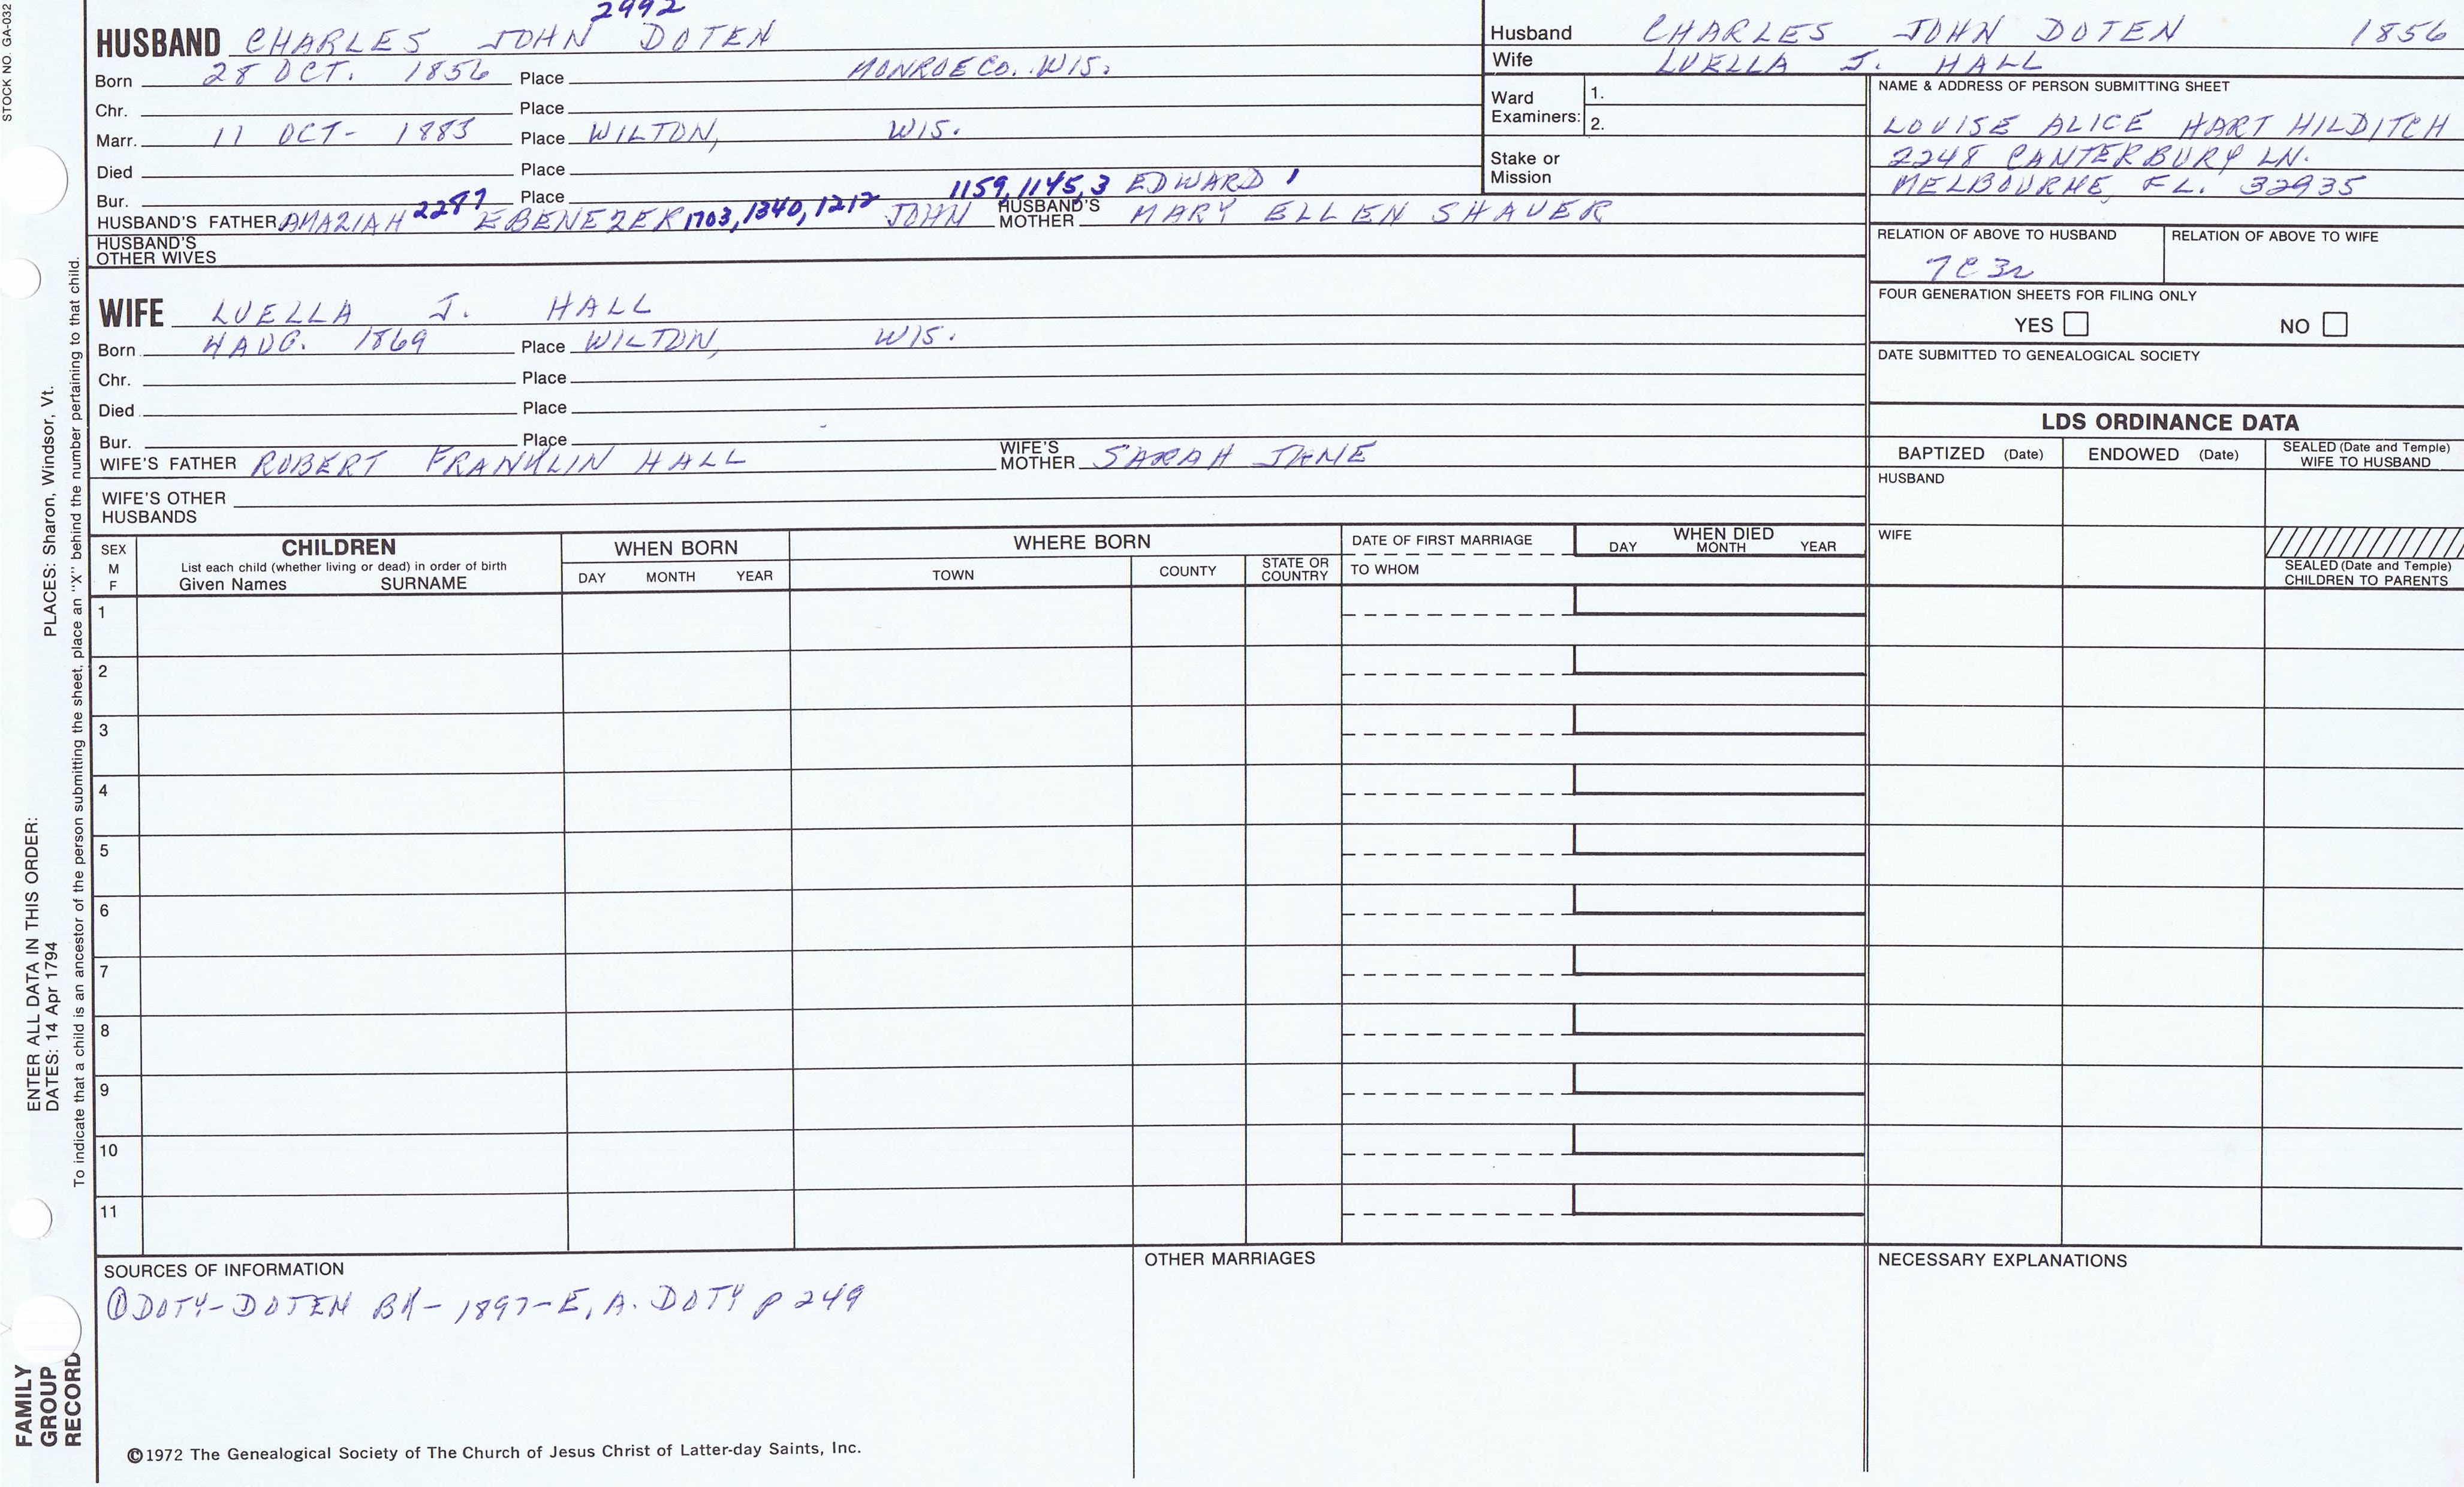 STOCK NO. GA-032
2992
HUSBAND CHARLES JOHN DOTEN
Born 28 OCT. 1856 Place MONROE CO. WIS.
Chr. Place
Marr. 11 OCT- 1883 Place WILTON, WIS.
Died Place
Bur. Place 1159, 1145, 3 EDWARD 1
HUSBAND'S FATHER AMAZIAH 2287 EBENEZER 1703, 1340, 1212 JOHN HUSBAND'S MOTHER MARY ELLEN SHAVER
HUSBAND'S OTHER WIVES
WIFE LUELLA J. HALL
Born 4 AUG. 1869 Place WILTON, WIS.
Chr. Place
Died Place
Bur. Place
WIFE'S FATHER ROBERT FRANKLIN HALL WIFE'S MOTHER SARAH JANE
WIFE'S OTHER HUSBANDS
Husband CHARLES JOHN DOTEN 1856
Wife LUELLA J. HALL
Ward Examiners: 1.
2.
Stake or Mission
NAME & ADDRESS OF PERSON SUBMITTING SHEET
LOUISE ALICE HART HILDITCH
2248 CANTERBURY LN.
MELBOURNE, FL. 32935
RELATION OF ABOVE TO HUSBAND RELATION OF ABOVE TO WIFE
7C3r
FOUR GENERATION SHEETS FOR FILING ONLY
YES NO
DATE SUBMITTED TO GENEALOGICAL SOCIETY
LDS ORDINANCE DATA
BAPTIZED (Date) ENDOWED (Date) SEALED (Date and Temple) WIFE TO HUSBAND
HUSBAND
WIFE
SEALED (Date and Temple) CHILDREN TO PARENTS
SEX M F
CHILDREN
List each child (whether living or dead) in order of birth
Given Names SURNAME
WHEN BORN
DAY MONTH YEAR
WHERE BORN
TOWN COUNTY STATE OR COUNTRY
DATE OF FIRST MARRIAGE
TO WHOM
WHEN DIED
DAY MONTH YEAR
1
2
3
4
5
6
7
8
9
10
11
SOURCES OF INFORMATION
① DOTY-DOTEN BK- 1897-E. A. DOTY p 249
OTHER MARRIAGES
NECESSARY EXPLANATIONS
©1972 The Genealogical Society of The Church of Jesus Christ of Latter-day Saints, Inc.
FAMILY
GROUP
RECORD
ENTER ALL DATA IN THIS ORDER:
DATES: 14 Apr 1794 PLACES: Sharon, Windsor, Vt.
To indicate that a child is an ancestor of the person submitting the sheet, place an "X" behind the number pertaining to that child.